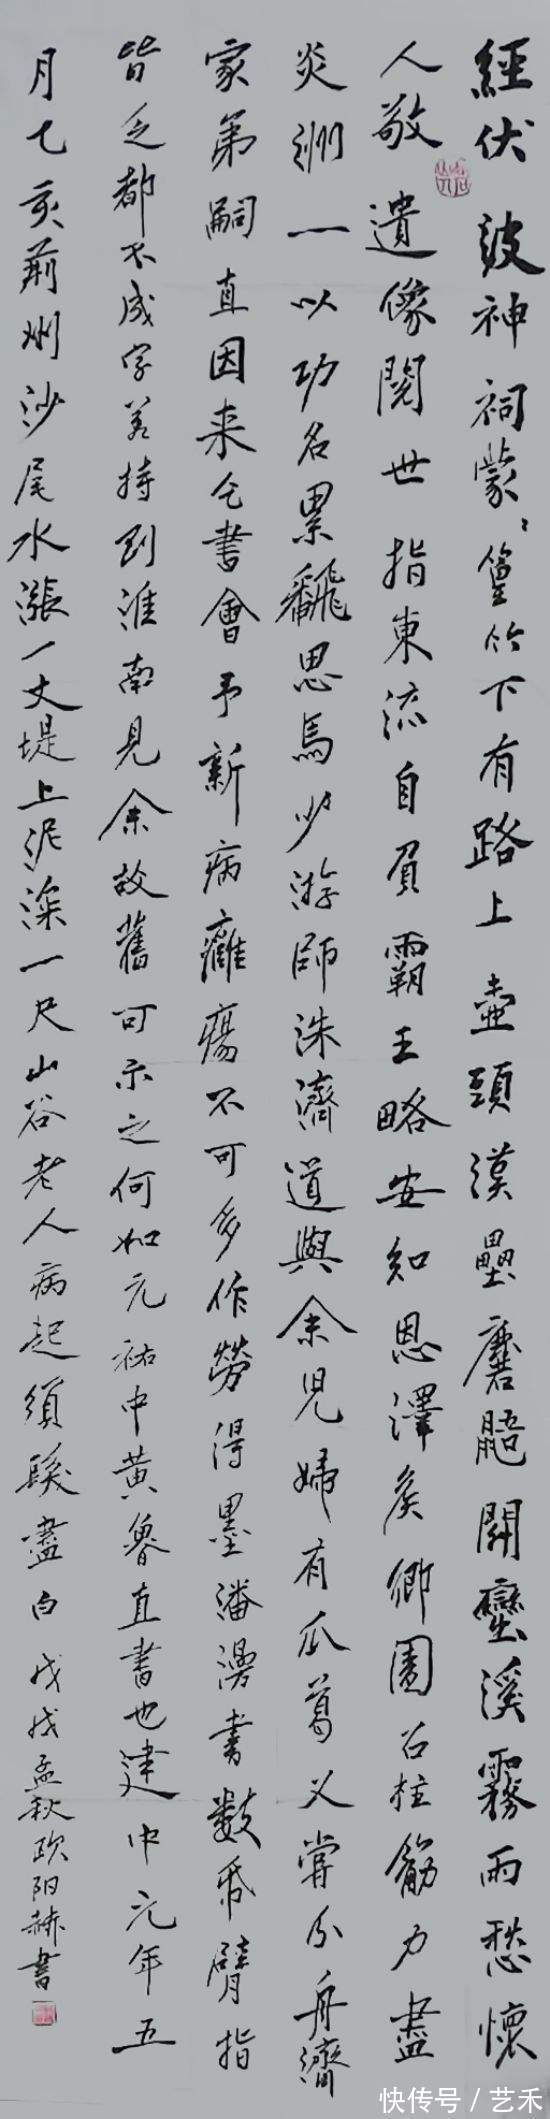 經伏波神祠蒙〻篁竹下有路上壺頭漢壘麏鼯鬭蠻溪霧雨愁懷
人敬遺像閱世指東流自負霸王略安知恩澤侯鄉園石柱筋力盡
炎洲一以功名累翻思馬少游師洙濟道與余兒婦有瓜葛又嘗分舟濟
家弟嗣直因來乞書會予新病癰瘍不可多作勞得墨瀋漫書數紙臂指
皆乏都不成字若持到淮南見余故舊可示之何如元祐中黃魯直書也建中元年五
月乙亥荊州沙尾水漲一丈堤上泥深一尺山谷老人病起須髮盡白 戊戌孟秋歐陽赫書
快传号 / 艺禾